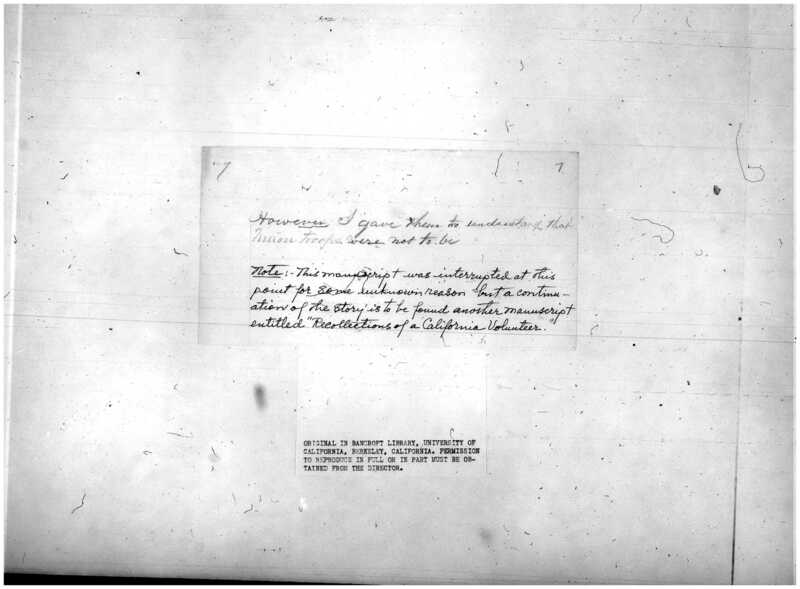 7 7
However I gave them to understand that
Union troops were not to be
Note:- This manuscript was interrupted at this
point for some unknown reason but a continu-
ation of the story is to be found another manuscript
entitled "Recollections of a California Volunteer."
ORIGINAL IN BANCROFT LIBRARY, UNIVERSITY OF
CALIFORNIA, BERKELEY, CALIFORNIA. PERMISSION
TO REPRODUCE IN FULL OR IN PART MUST BE OB-
TAINED FROM THE DIRECTOR.